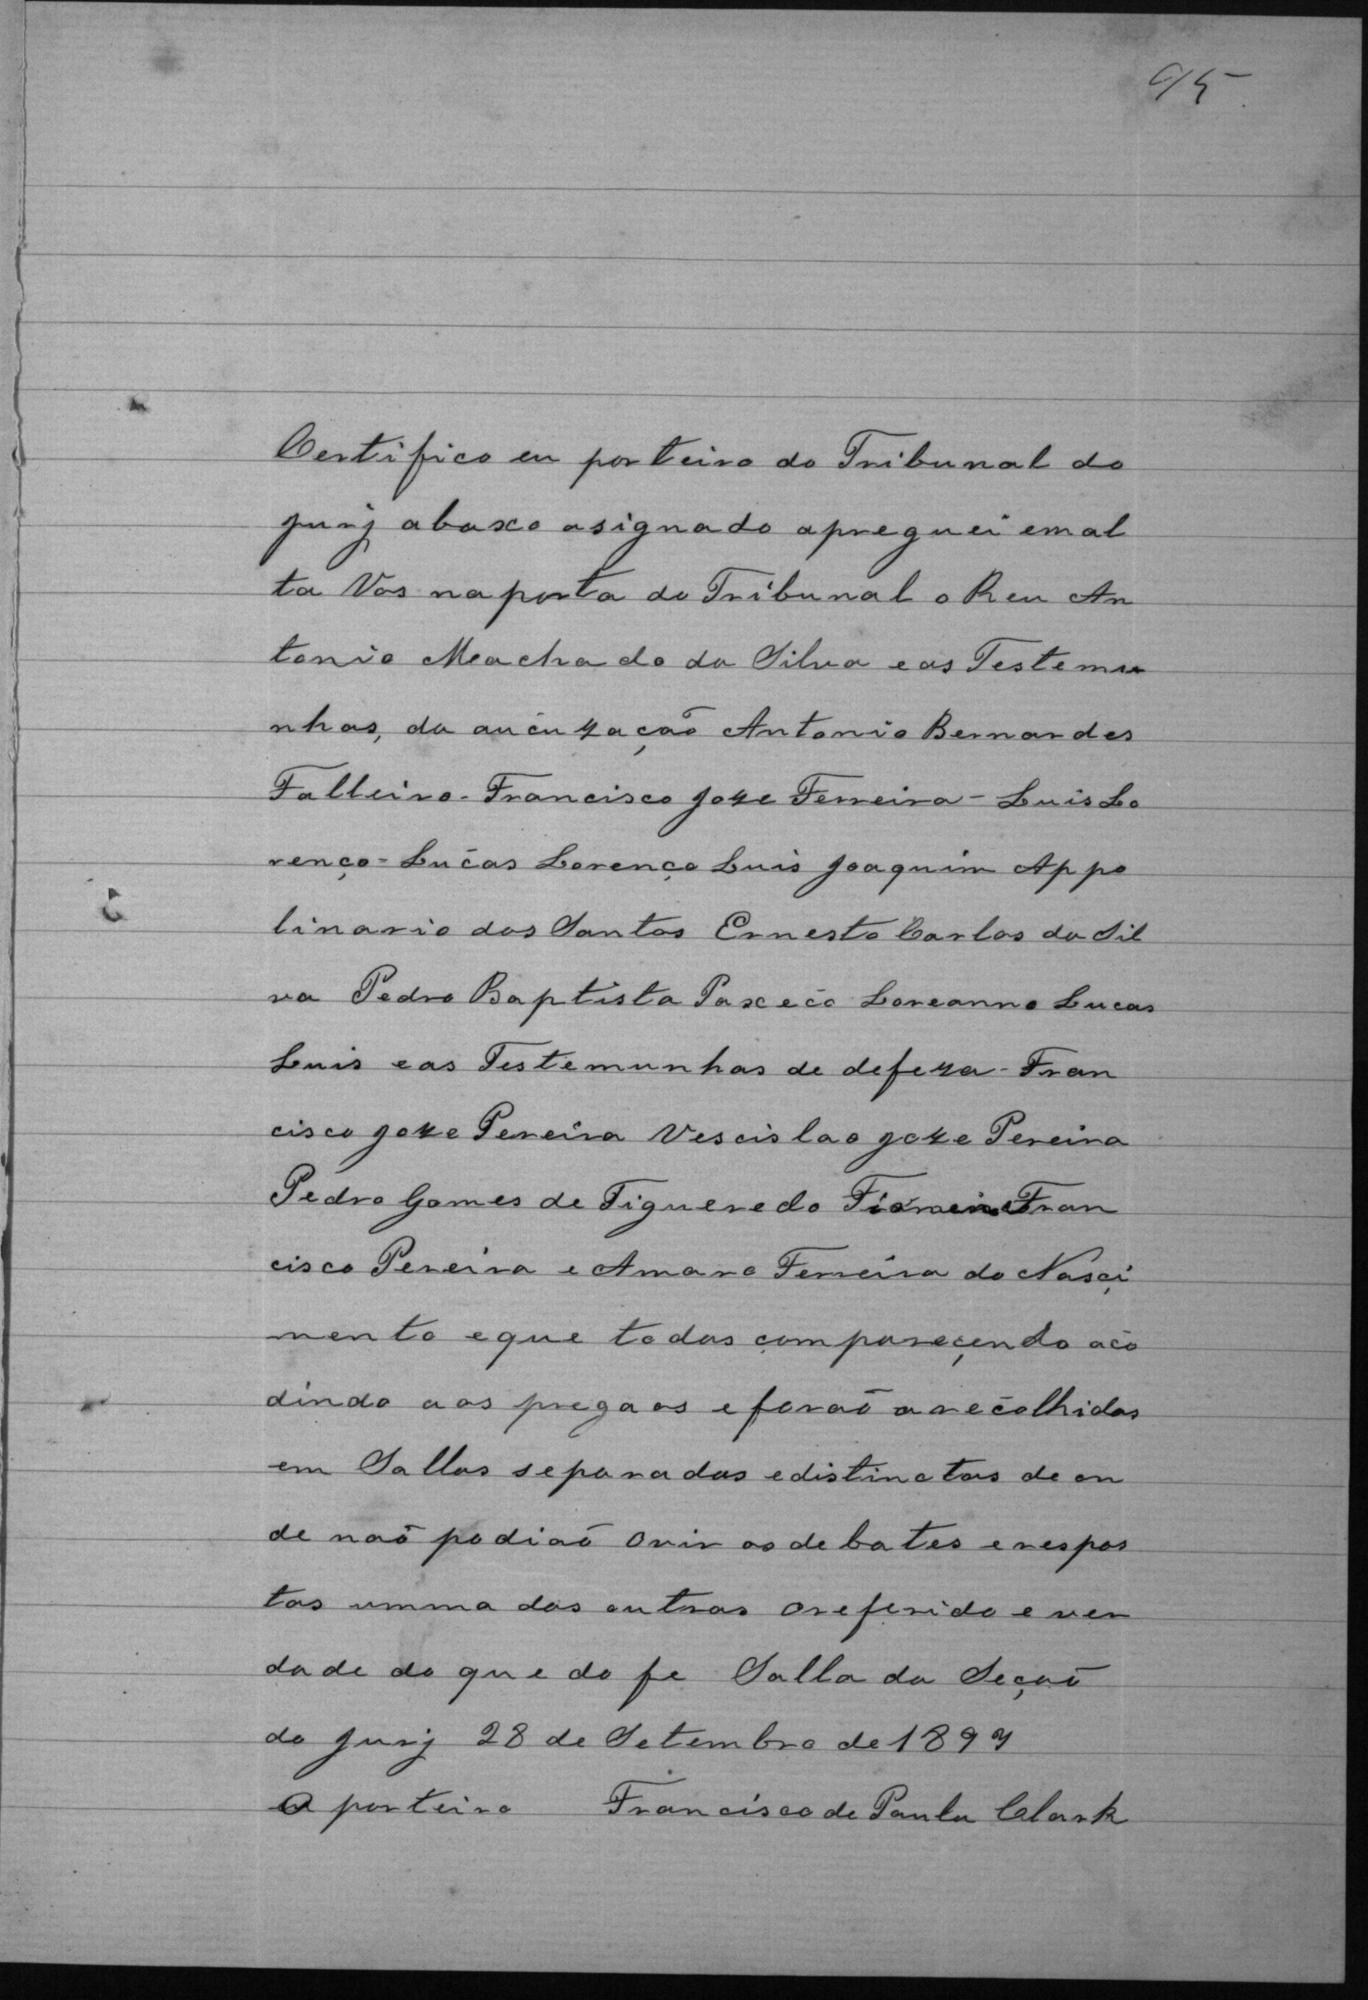 95
Certifico eu porteiro do Tribunal do
jurj abaxo asignado apreguei em al
ta Vos na porta do Tribunal o Reu An
tonio Machado da Silva e as Testemu
nhas, da aucuzação Antonio Bernardes
Falleiro - Francisco Joze Ferreira - Luis Lo
renço - Lucas Lorenço Luis Joaquim Appo
linario dos Santos Ernesto Carlos da Sil
va Pedro Baptista Paxeco Loreanno Lucas
Luis e as Testemunhas de defeza - Fran
cisco Joze Pereira Vescislao Joze Pereira
Pedro Gomes de Figueredo Fran
cisco Pereira e Amaro Ferreira do Nasçi
mento e que todas compareçendo aco
dindo aos pregaos e foraõ arecolhidas
em Sallas separadas e distinctas de on
de naõ podiaõ ovir os debates e respos
tas umma das outras o referido e ver
dade do que do fe Salla da Seçaõ
do jurj 28 de Setembro de 1897
O porteiro Francisco de Paula Clark